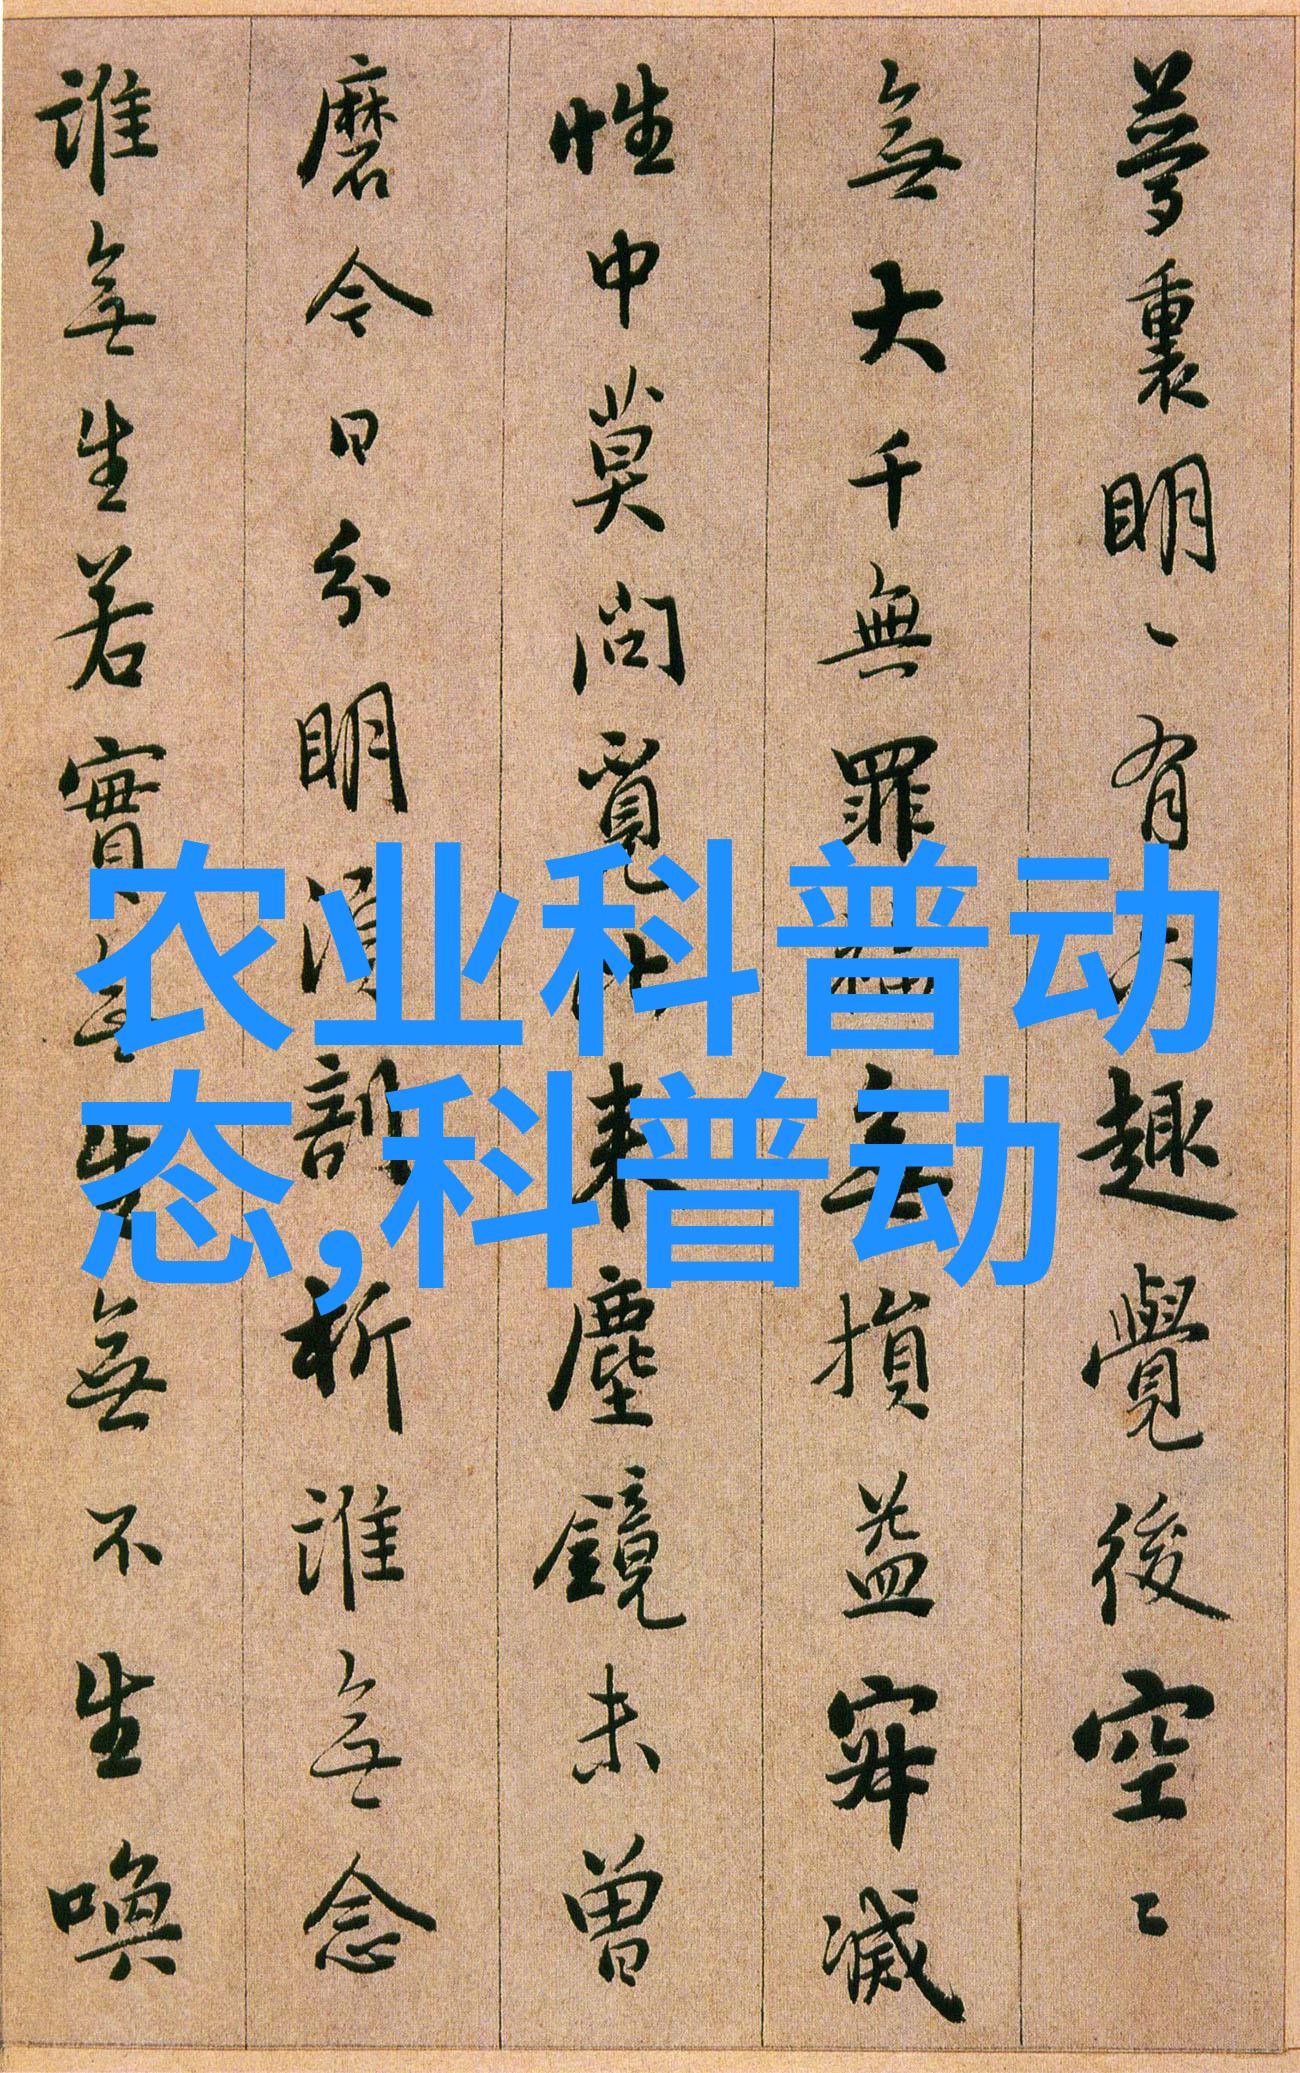 夢裏明〻有六趣覺後空〻
無大千無罪福無損益寂滅
性中莫問覓比來塵鏡未曾
磨今日分明須剖析誰無念
誰無生若實無生無不生喚
农业科普动
态,科普动